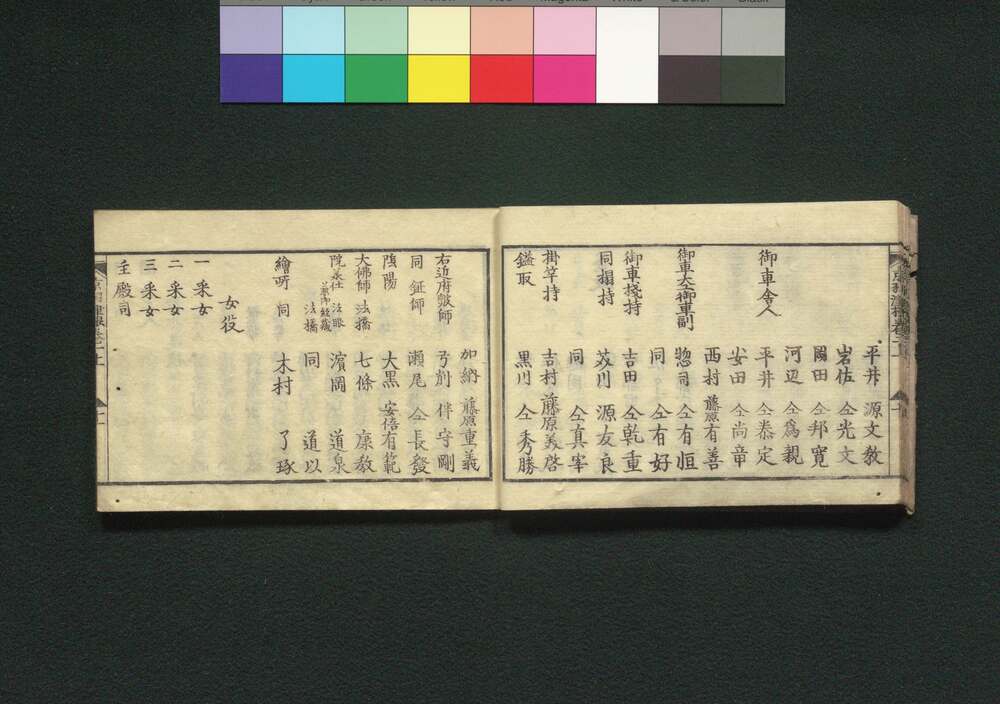 平井 源文教
岩佐 仝光文
岡田 仝邦寛
河辺 仝為親
御車舎人 平井 仝恭定
安田 仝尚章
西村 藤原有善
御車大御車副 惣司 仝有恒
同 仝有好
御車桟持 吉田 仝乾重
同榻持 苅川 源友良
同 仝真宰
掛竿持 吉村 藤原美啓
鎰取 黒川 仝秀勝
加納 藤原重義
右近府皷師 弓削 伴守剛
同 鉦師 瀬尾 仝長發
陰陽 大黒 安倍有範
大佛師 法橋 七條 康教
院承仕 法眼 濵岡 道泉
法橋 同 道以
繪所 同 木村 了琢
女役
一 采女
二 采女
三 采女
主殿司